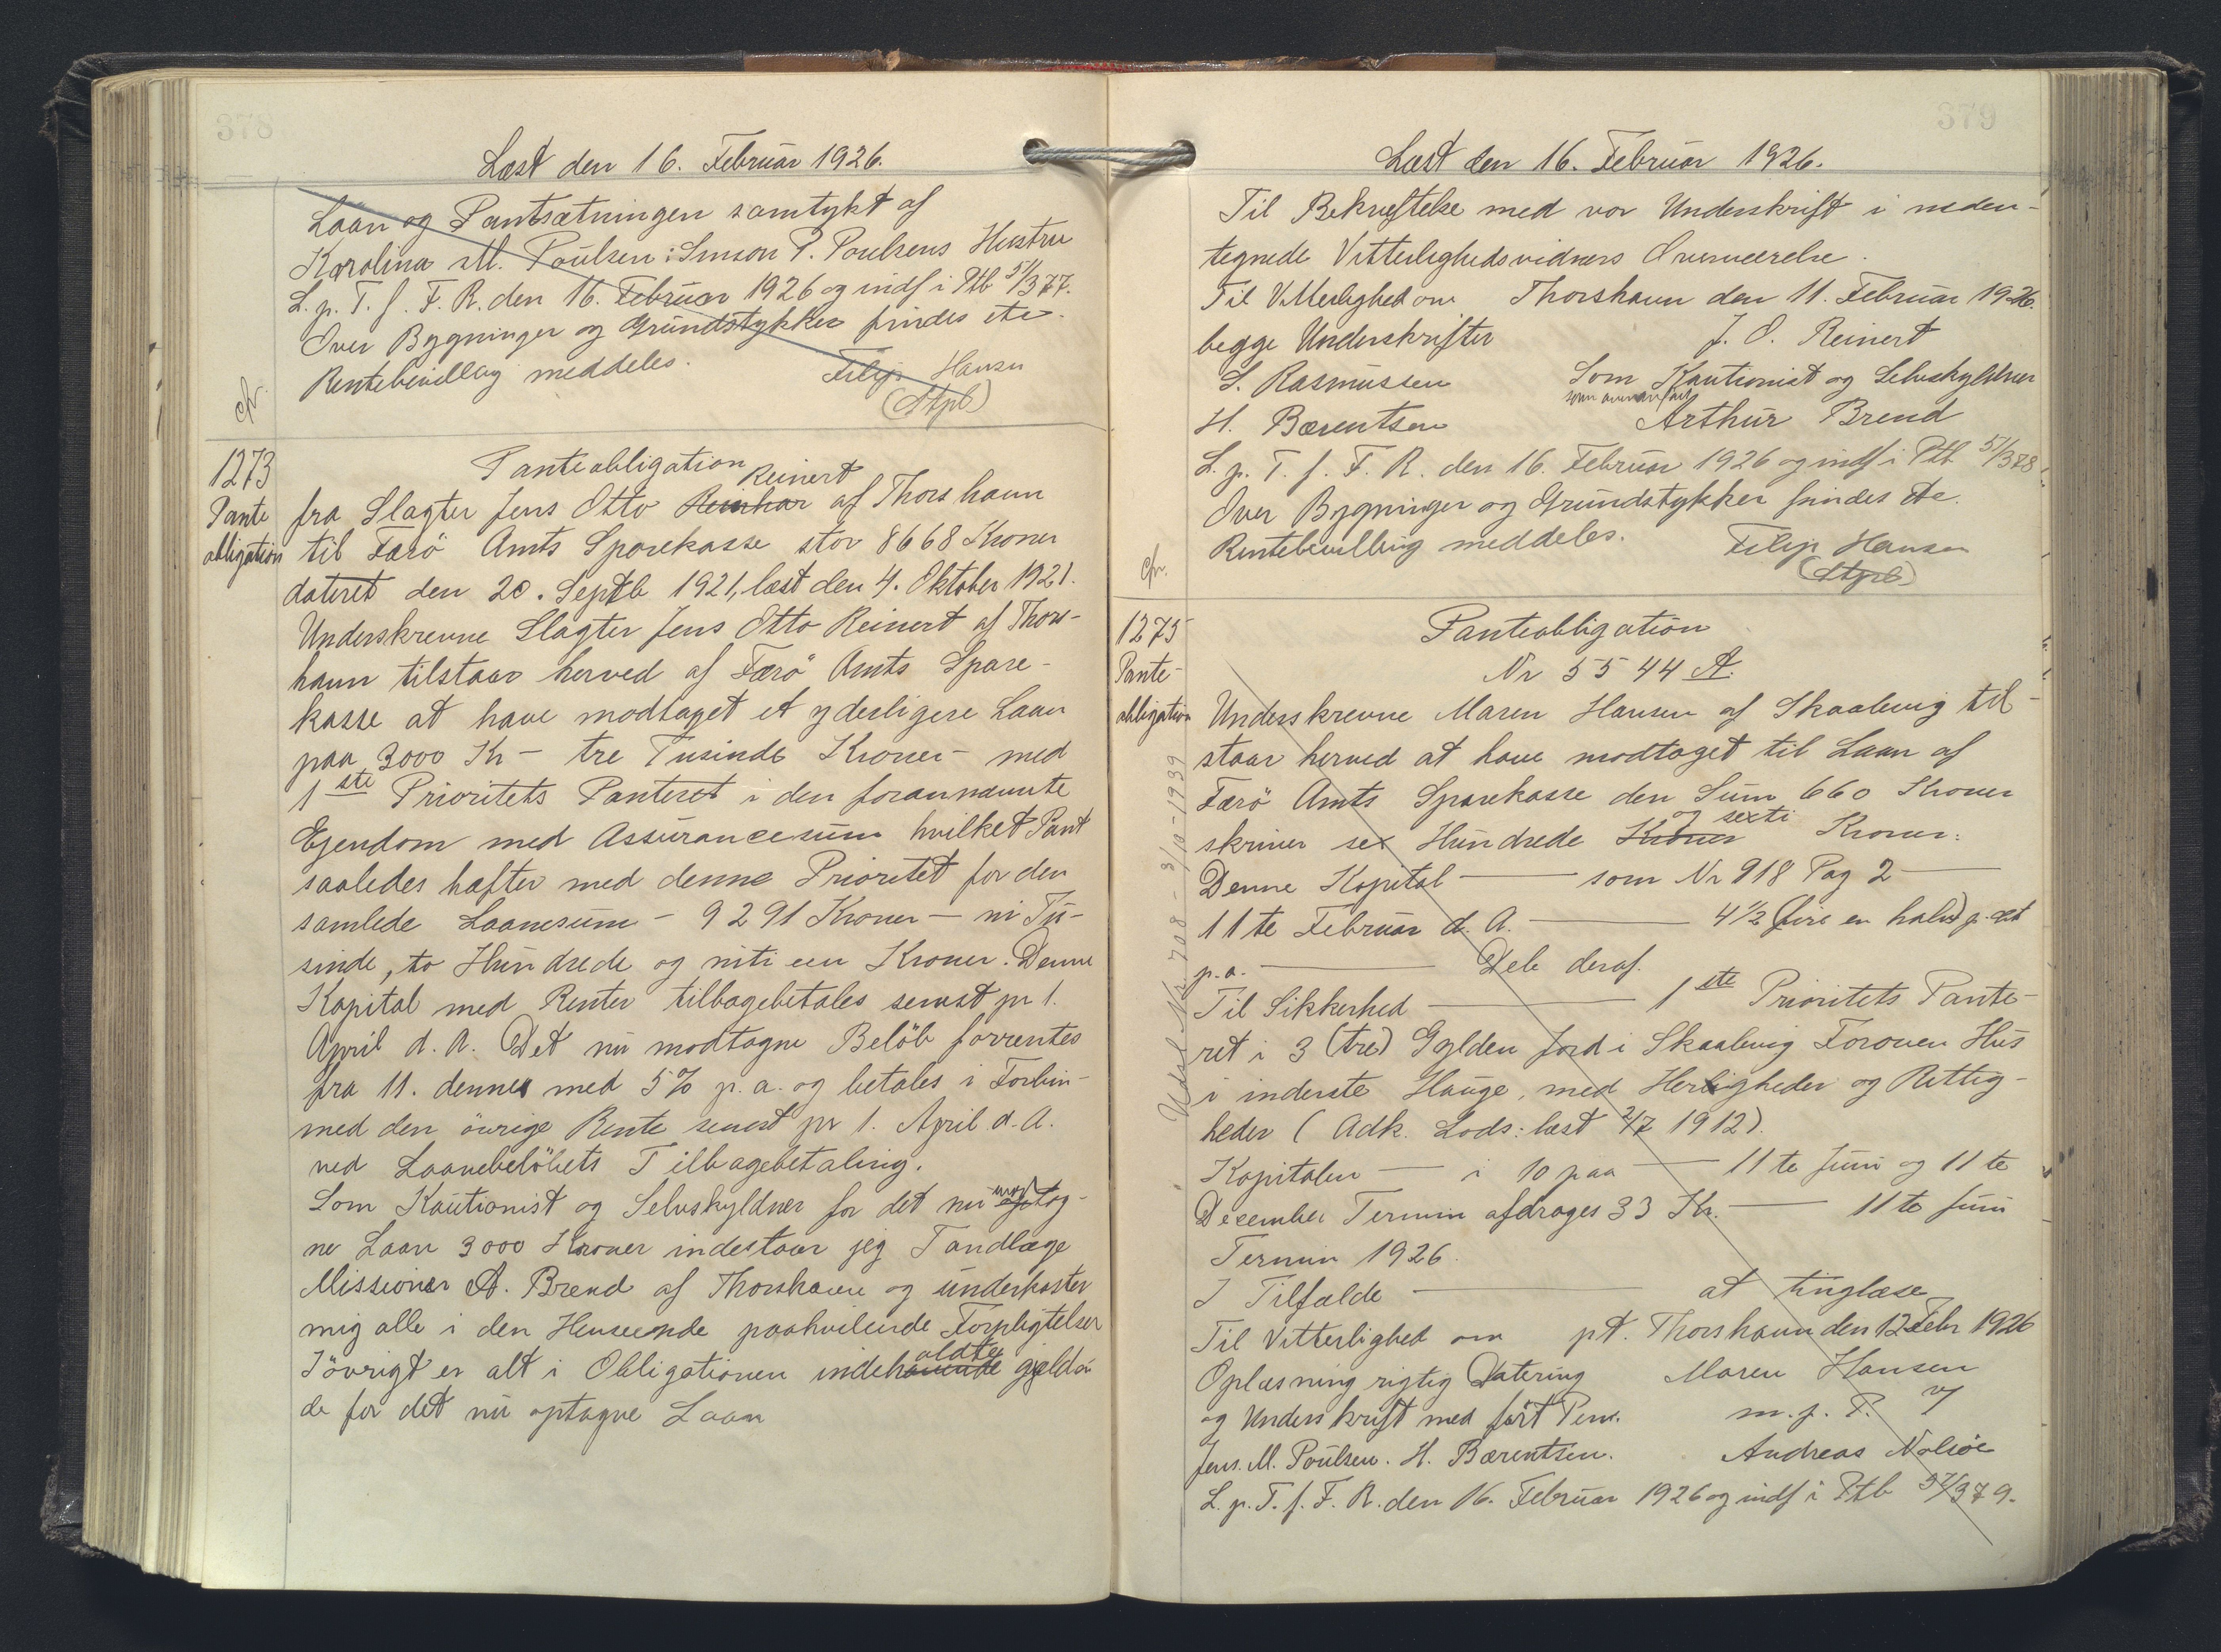 378
Læst den 16. Februar 1926.
Laan og Pantsætningen samtykt af
Karolina M. Poulsen: Simson P. Poulsens Hustru
L. p. T. f. F. R. den 16. Februar 1926 og indf i Ptb 51/377.
Over Bygninger og Grundstykker findes etc.
Rentebevilling meddeles. Filip Hansen
(Stpl)
1273
Pante
obligation
Panteobligation
Reinert
fra Slagter Jens Otto Reinhar af Thorshavn
til Færö Amts Sparekasse stor 8668 Kroner
dateret den 20. Septb 1921, læst den 4. Oktober 1921.
Underskrevne Slagter Jens Otto Reinert af Thors-
havn tilstaar herved af Færö Amts Spare-
kasse at have modtaget et yderligere Laan
paa 3000 Kr - tre Tusinde Kroner - med
1ste Prioritets Panteret i den forannævnte
Ejendom med Assurancesum hvilket Pant
saaledes hæfter med denne Prioritet for den
samlede Laanesum - 9291 Kroner - ni Tu-
sinde, to Hundrede og niti een Kroner. Denne
Kapital med Renter tilbagebetales senest pr 1.
April d. A. Det nu modtagne Belöb forrentes
fra 11. dennes med 5% p. a. og betales i Forbin-
med den övrige Rente senest pr 1. April d. A.
ved Laanebelöbets Tilbagebetaling.
Som Kautionist og Selvskyldner for det nu modtag-
ne Laan 3000 Kroner indestaar jeg Tandlæge
Missionær A. Brend af Thorshavn og underkaster
mig alle i den Henseende paahvilende Forpligtelser
oldte
Iövrigt er alt i Obligationen indehavende gjelden
de for det nu optagne Laan
379
Læst den 16. Februar 1926.
Til Bekræftelse med vor Underskrift i neden-
tegnede Vitterlighedsvidners Overværelse.
Til Vitterlighed om Thorshavn den 11. Februar 1926.
begge Underskrifter J. O. Reinert
S. Rasmussen Som Kautionist og Selvskyldner
som anmærket
H. Bærentsen Arthur Brend
L. p. T. f. F. R. den 16. Februar 1926 og indf i Ptb 51/378
Over Bygninger og Grundstykker findes etc.
Rentebevilling meddeles. Filip Hansen
(Stpl)
1275
Pante-
obligation
Panteobligation
Nr 5544 A.
Underskrevne Maren Hansen af Skaalevig til-
staar herved at have modtaget til Laan af
Færö Amts Sparekasse den Sum 660 Kroner
og sexti
skriver sex Hundrede Kroner Kroner:
Denne Kapital — som Nr 918 Pag 2 —
11te Februar d. A. — 4½ (fire en halv) p. ct
p. a. — Dele deraf.
Til Sikkerhed — 1ste Prioritets Pante-
ret i 3 (tre) Gylden Jord i Skaalevig Foroven Hus
i inderste Hauge, med Herligheder og Rettig-
heder (Adk. Lods: læst 2/7 1912).
Kapitalen — i 10 paa — 11te Juni og 11te
December Termin afdrages 33 Kr. — 11te Juni
Termin 1926.
I Tilfælde — at tinglæse
Til Vitterlighed om pt. Thorshavn den 12 Febr 1926
Oplæsning rigtig Datering Maren Hansen
og Underskrift med fört Pen. m. f. P. v/
Jens. M. Poulsen. H. Bærentsen. Andreas Nolsöe
L. p. T. f. F. R. den 16. Februar 1926 og indf i Ptb 51/379.
Udsl. Nr 708 - 3/10-1939